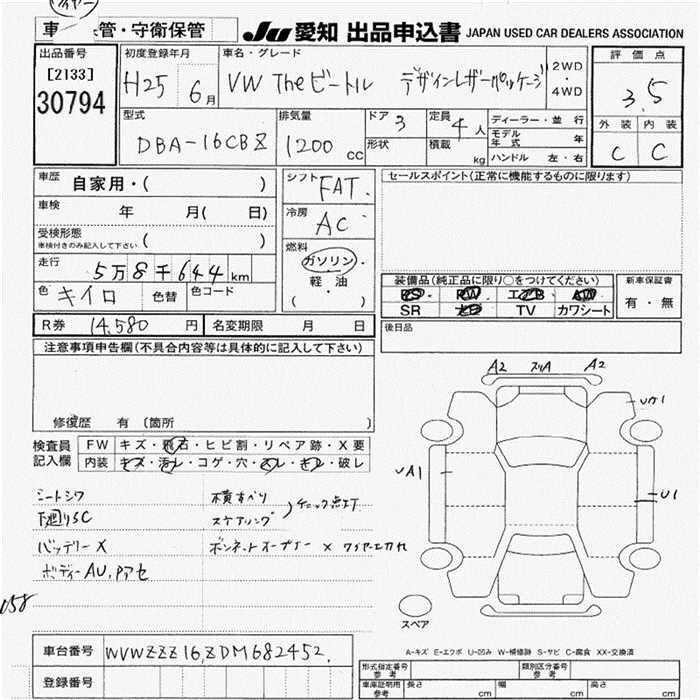 車 管・守衛保管
JU 愛知 出品申込書 JAPAN USED CAR DEALERS ASSOCIATION
出品番号
[2133]
30794
初度登録年月
H25 6月
車名・グレード
VW Theビートル デザインレザーパッケージ
2WD
・
4WD
評価点
3.5
外装 内装
C C
型式
DBA-16CBZ
排気量
1200 cc
ドア 3
定員 4 人
形状
積載 kg
ディーラー・並行
モデル年式 年
ハンドル 左・右
車歴 自家用・( )
車検 年 月( 日)
受検形態
車検付きのみ記入して下さい ( )
走行 5万8千644km
色 キイロ 色替 色コード
シフト FAT
冷房 AC
燃料
ガソリン
軽・油
( )
セールスポイント(正常に機能するものに限ります)
装備品(純正品に限り○をつけてください)
PS・PW・エアB・AW
SR TV カワシート
新車保証書
有・無
R券 14,580 円 名変期限 月 日
後日品
注意事項申告欄(不具合内容等は具体的に記入して下さい)
修復歴 有 (箇所 )
検査員
記入欄
FW キズ・飛石・ヒビ割・リペア跡・X要
内装 キズ・汚レ・コゲ・穴・スレ・キレ・破レ
シートシワ
下廻りSC
バッテリーX
ボディーAU,Pアセ
横すべり
ステアリング
チェック点灯
ボンネットオープナー × ワイヤー切れ
158
A2 スリA A2
UA1
UA1
U1
スペア
A-キズ E-エクボ U-凹み W-補修跡 S-サビ C-腐食 XX-交換済
車台番号 WVWZZZ16ZDM682452
登録番号
形式指定番号 参考
類別区分番号 参考
車庫証明用 参考 長さ cm 幅 cm 高さ cm